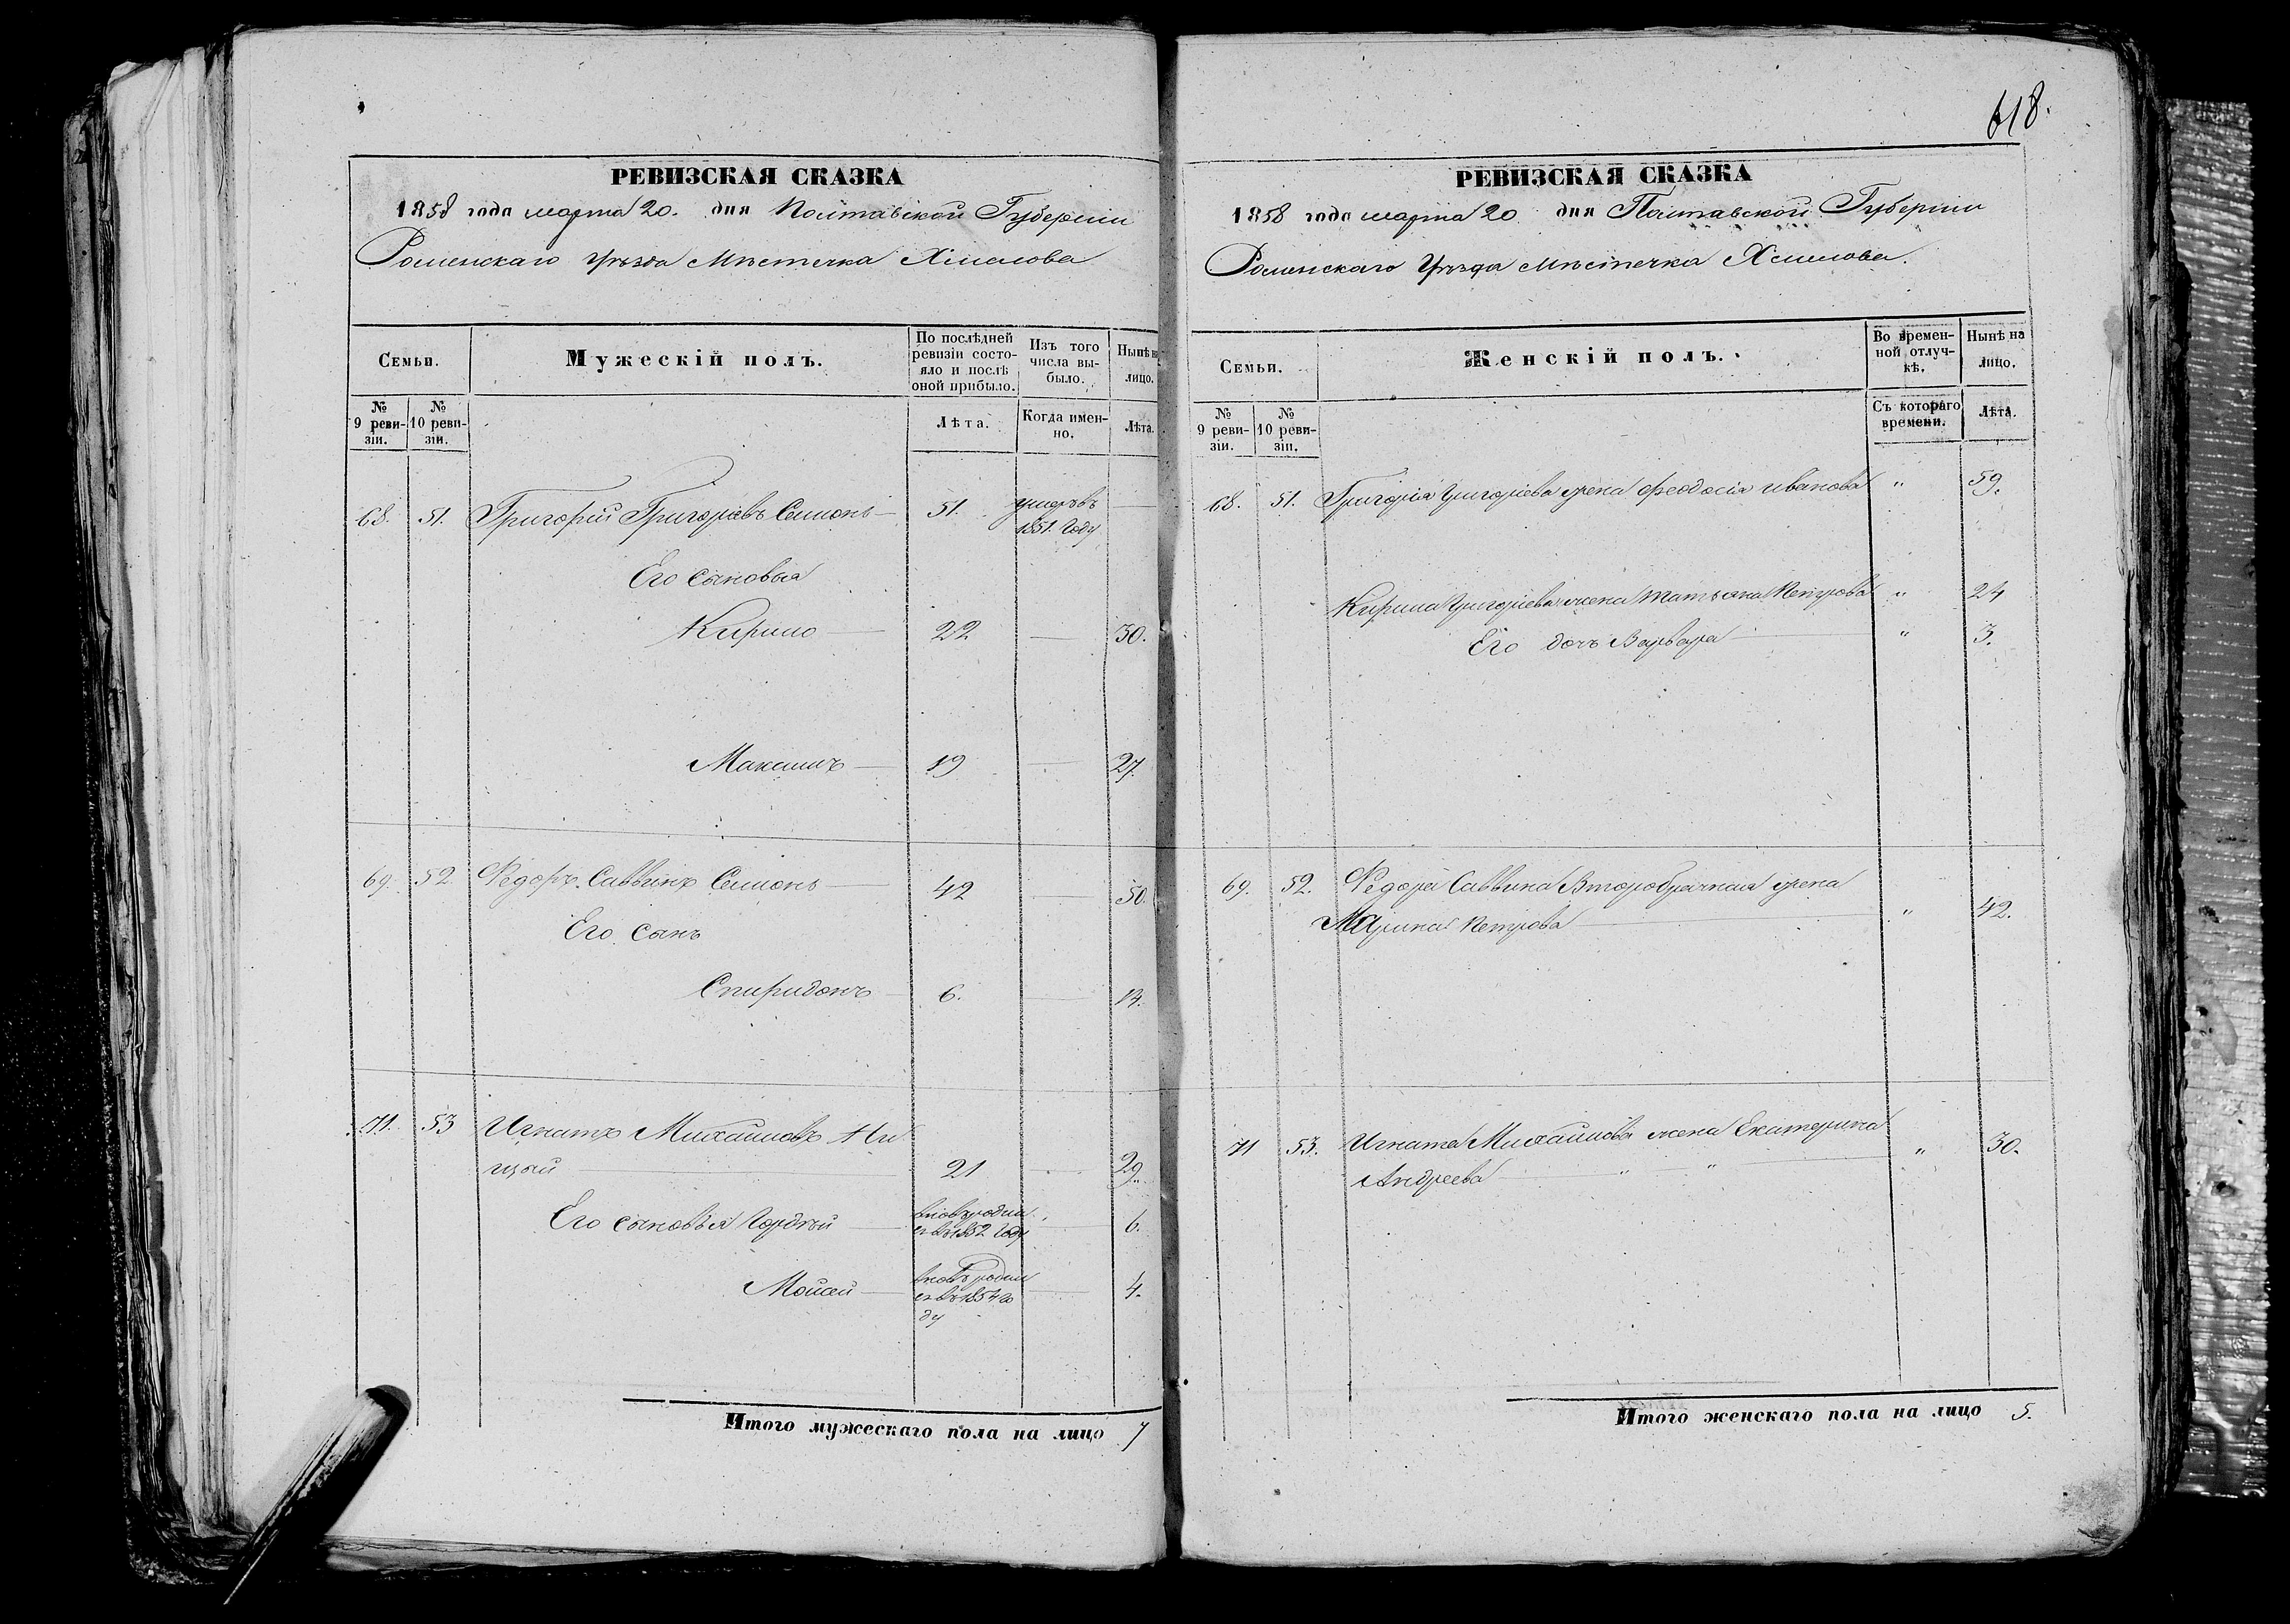 618.
РЕВИЗСКАЯ СКАЗКА
1858 года марта 20. дня Полтавской Губерніи
Роменскаго Уѣзда Мѣстечка Хмелова
Семьи.
Мужескій полъ.
По послѣдней ревизіи состояло и послѣ оной прибыло.
Изъ того числа выбыло.
Нынѣ на лицо.
№ 9 ревизіи.
№ 10 ревизіи.
Лѣта.
Когда именно.
Лѣта.
68. 51. Григорій Григорьевъ Семионъ 51. умеръ въ 1851. Году
Его сыновья
Кирило 22 30.
Максимъ 19 27.
69. 52. Федоръ Саввинъ Семионъ 42 50.
Его сынъ
Спиридонъ 6. 14.
71. 53 Игнатъ Михайловъ
21 29.
Его сыновья Гордѣй вновь родился въ 1852 Году 6.
Мойсей вновь родился въ 1854 году 4.
Итого мужескаго пола на лицо 7
РЕВИЗСКАЯ СКАЗКА
1858 года марта 20 дня Полтавской Губерніи
Роменскаго Уѣзда Мѣстечка Хмелова.
Семьи.
Женскій полъ.
Во временной отлучкѣ.
Нынѣ на лицо.
№ 9 ревизіи.
№ 10 ревизіи.
Съ котораго времени.
Лѣта.
68. 51. Григорія Григоріева жена Феодосія иванова " 59.
Кирила Григоріева жена Татьяна Петрова " 24
Его дочь Варвара " 3.
69. 52. Федора Саввина Второбрачная жена
Марина Петрова " 42.
71 53. Игната Михайлова жена Екатерина
Андреева " " " 30.
Итого женскаго пола на лицо 5.